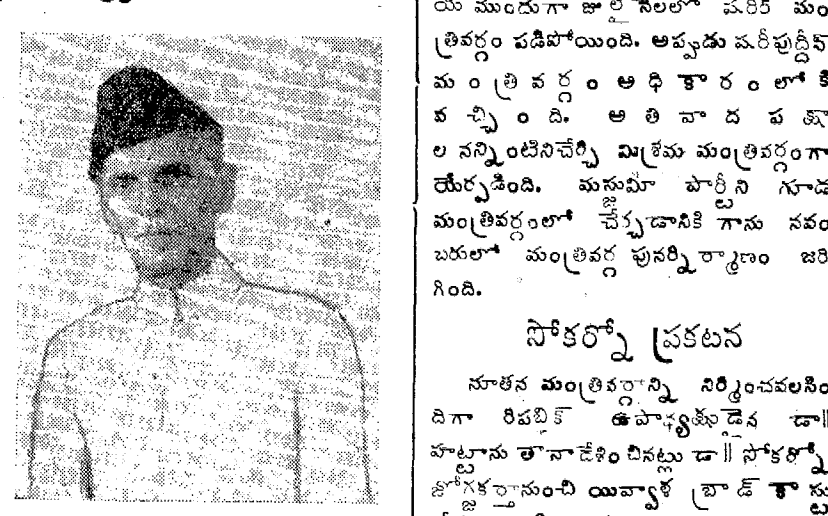 య ముందుగా జులై నెలలో షరీర్ మం
త్రివర్గం పడిపోయింది. అప్పుడు షరీఫుద్దీన్
మంత్రివర్గం అధికారంలోకి
వచ్చింది. అతివాద పక్షా
ల నన్నింటినిచేర్చి మిశ్రమ మంత్రివర్గంగా
యేర్పడింది. మస్జుమీ పార్టీని గూడ
మంత్రివర్గంలో చేర్చడానికి గాను నవం
బరులో మంత్రివర్గ పునర్నిర్మాణం జరి
గింది.
సోకర్నో ప్రకటన
నూతన మంత్రివర్గాన్ని నిర్మించవలసిం
దిగా రిపబ్లిక్ ఉపాధ్యక్షుడైన డా॥
హట్టాను తానాదేశించినట్లు డా॥ సోకర్నో
జోగ్జకర్తానుంచి యివ్వాళ బ్రాడ్ కాస్టు